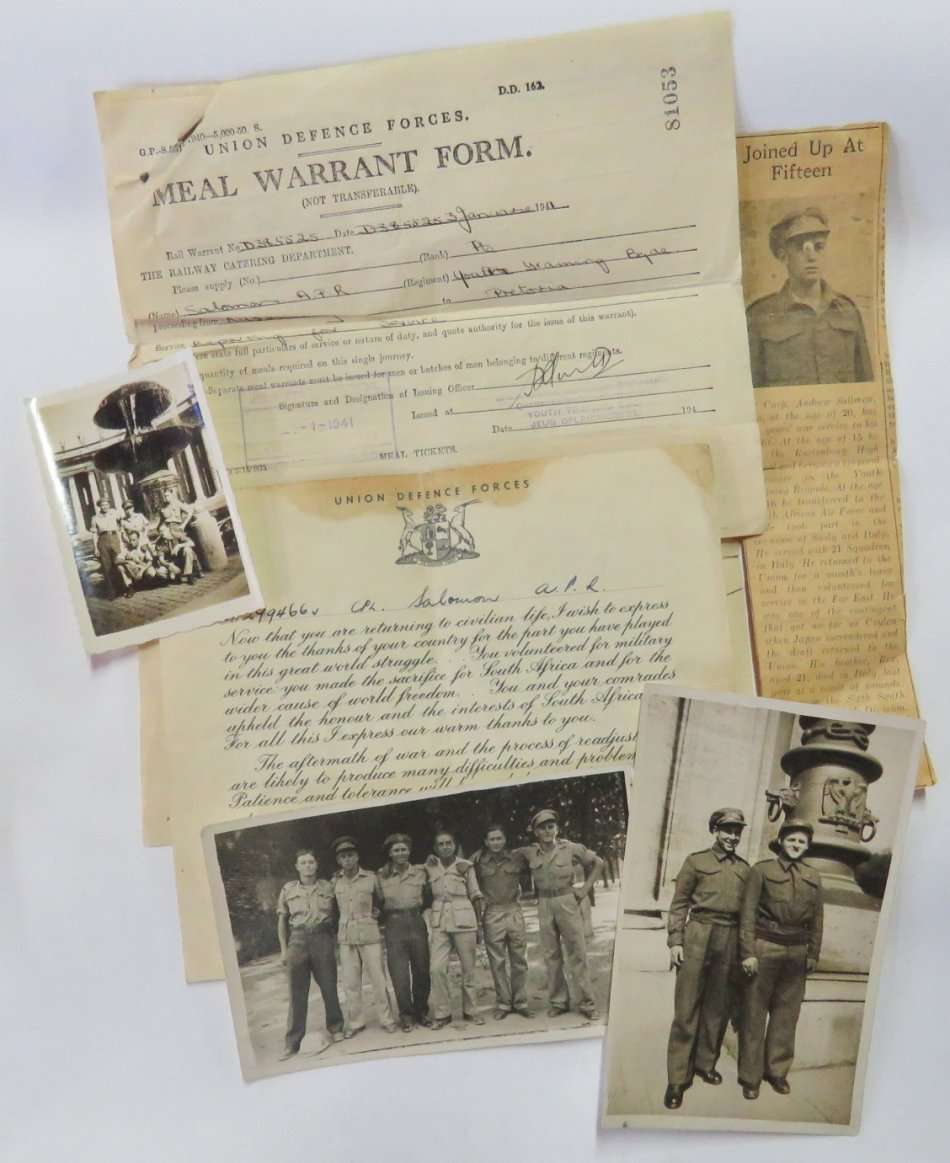 D.D. 162.
81053
UNION DEFENCE FORCES.
MEAL WARRANT FORM.
(NOT TRANSFERABLE).
Rail Warrant No D385525 Date D385525 3 January 1941
THE RAILWAY CATERING DEPARTMENT.
Please supply (No.) (Rank) Pte
(Regiment) Youths Training Bgde
(Name) Salomon A.P.R
proceeding from to Pretoria
Service Reporting for Service
state full particulars of service or nature of duty, and quote authority for the issue of this warrant).
quantity of meals required on this single journey.
Separate meal warrants must be issued for men or batches of men belonging to different regiments
Signature and Designation of Issuing Officer
Issued at
-1-1941
YOUTH
JEUG
Date 194
MEAL TICKETS.
Joined Up At
Fifteen
Corp. Andrew Salomon,
at the age of 20, has
years' war service to his
At the age of 15 he
the Rustenburg High
and became a
in the Youth
Brigade. At the age
he transferred to the
African Air Force and
took part in the
invasion of Sicily and Italy.
He served with 21 Squadron,
in Italy. He returned to the
Union for a month's leave
and then volunteered for
service in the Far East. He
was one of the contingent
that got as far as Ceylon
when Japan surrendered and
the draft returned to the
Union. His brother,
aged 21, died in Italy last
year as a result of wounds
the Sixth South
Division.
UNION DEFENCE FORCES
99466v CPL. Salomon A.P.R.
Now that you are returning to civilian life, I wish to express
to you the thanks of your country for the part you have played
in this great world struggle. . . You volunteered for military
service: you made the sacrifice for South Africa and for the
wider cause of world freedom. . . You and your comrades
upheld the honour and the interests of South Africa
For all this I express our warm thanks to you.
The aftermath of war and the process of
are likely to produce many difficulties and
Patience and tolerance will